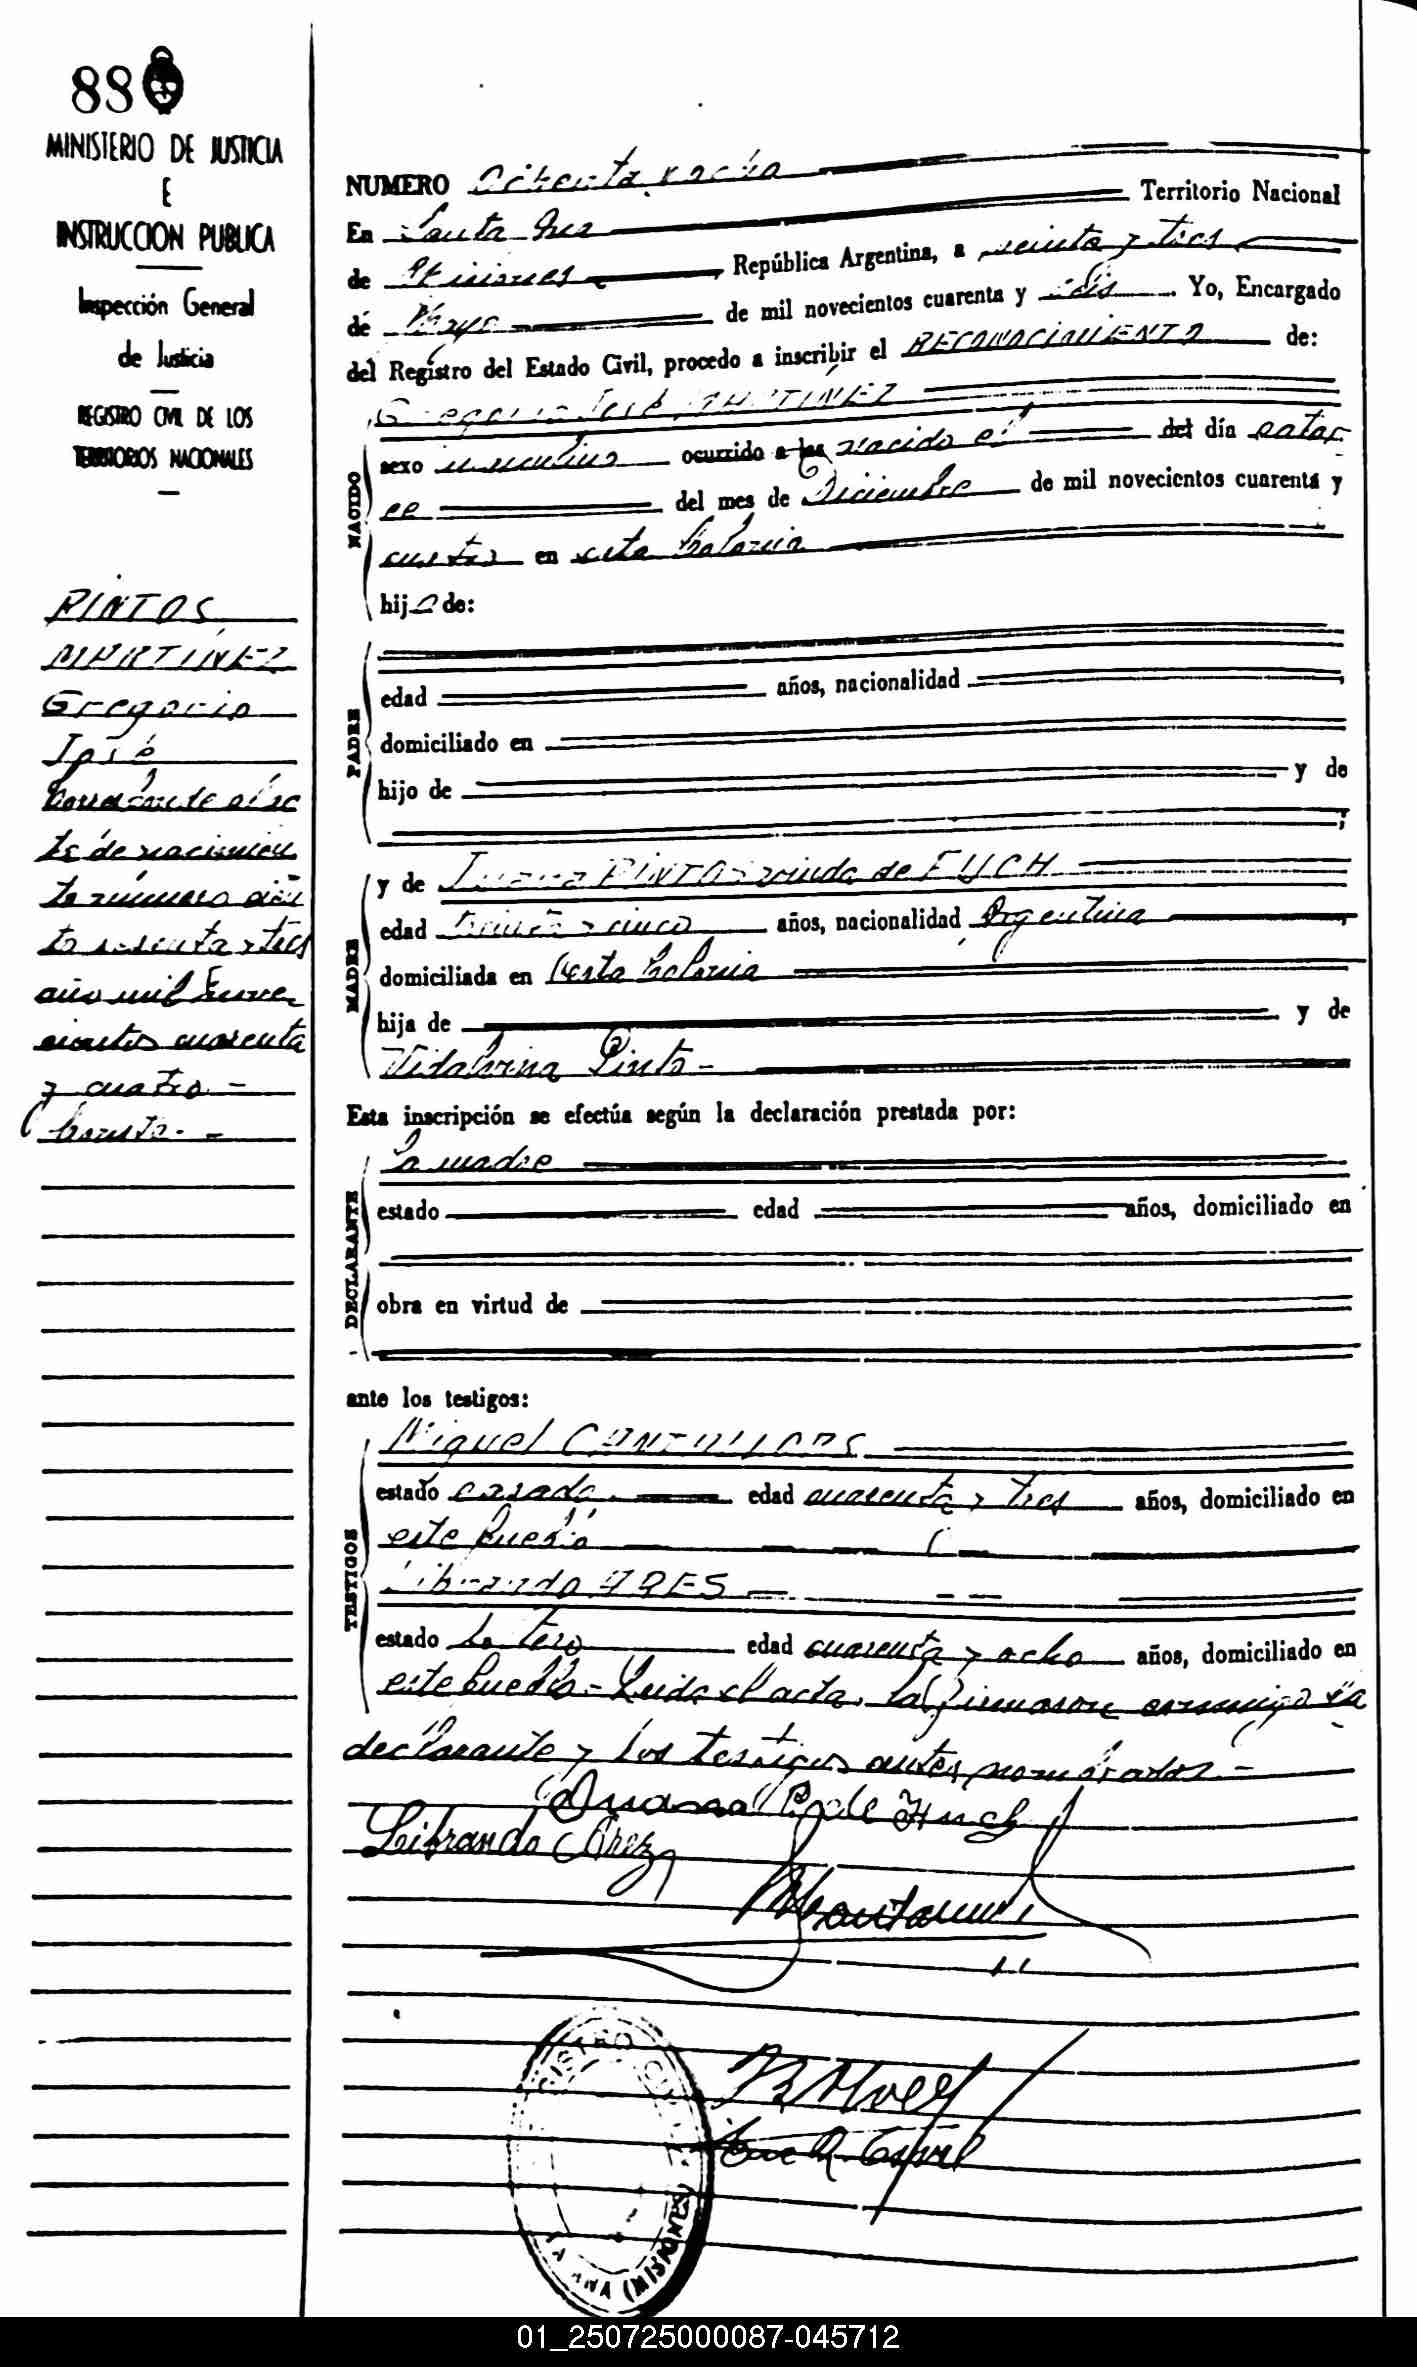 88
MINISTERIO DE JUSTICIA
E
INSTRUCCION PUBLICA
Inspección General
de Justicia
REGISTRO CIVIL DE LOS
TERRITORIOS NACIONALES
PINTOS
MARTINEZ
Gregorio
José
te de nacimien
to número cien
to sesenta y tres
año mil nove
cientos cuarenta
y cuatro -
NUMERO Ochenta y ocho
En Santa Ana Territorio Nacional
de Misiones, República Argentina, a veinte y tres
de Mayo de mil novecientos cuarenta y seis. Yo, Encargado
del Registro del Estado Civil, procedo a inscribir el RECONOCIMIENTO de:
NACIDO
Gregorio José MARTINEZ
sexo masculino ocurrido a las nacido el del día cator
ce del mes de Diciembre de mil novecientos cuarenta y
cuatro en esta Colonia
hijo de:
PADRE
edad años, nacionalidad
domiciliado en
hijo de y de
MADRE
y de Juana PINTOS viuda de
edad treinta y cinco años, nacionalidad Argentina
domiciliada en esta Colonia
hija de y de
Pinto -
Esta inscripción se efectúa según la declaración prestada por:
DECLARANTE
La madre
estado edad años, domiciliado en
obra en virtud de
ante los testigos:
TESTIGOS
Miguel
estado casado edad cuarenta y tres años, domiciliado en
este pueblo
Librando ARES
estado soltero edad cuarenta y ocho años, domiciliado en
este pueblo - Leida el acta, la firmaron conmigo la
declarante y los testigos antes nombrados -
Juana P. de
Librando Arez
REGISTRO CIVIL
SANTA ANA (MISIONES)
01_250725000087-045712